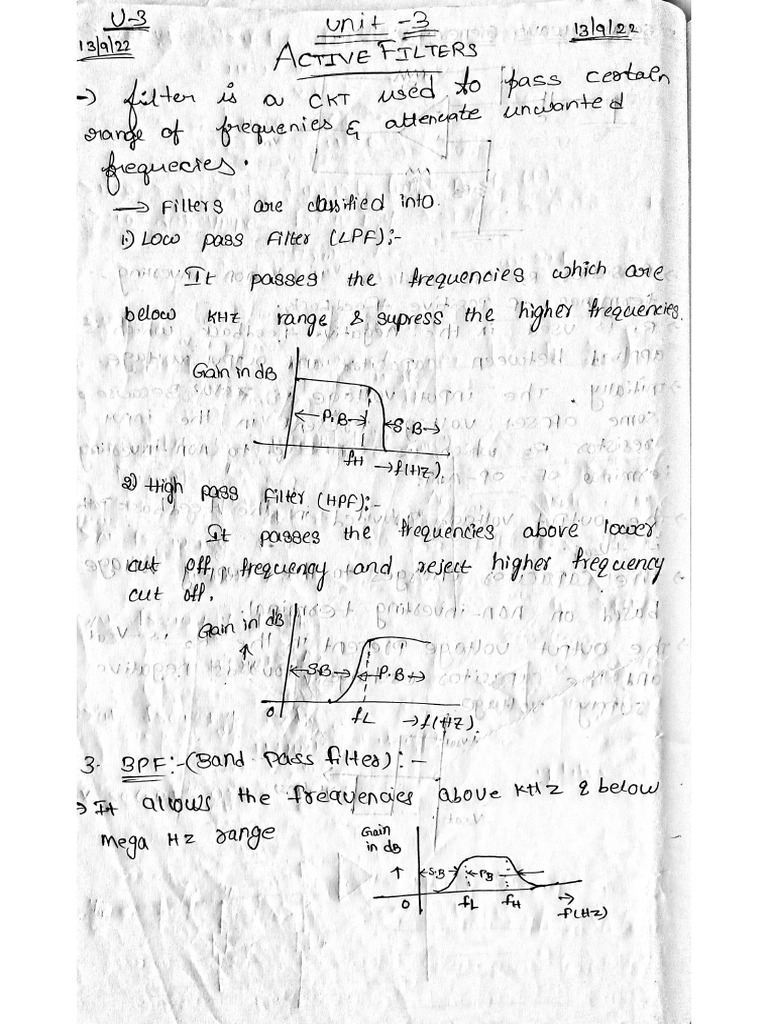 U-3
13/9/22
Unit-3
13/9/22
ACTIVE FILTERS
-) filter is a CKT used to pass certain
range of frequenies & attenuate unwanted
frequecies.
→ Filters are classified into.
1) Low pass filter (LPF):-
It passes the frequencies which are
below KHZ range & supress the higher frequencies.
Gain in dB
P.B
S.B
fH
→f(HZ).
2) High pass filter (HPF):-
It passes the frequencies above lower
cut off, frequency and reject higher frequency
cut off.
Gain in dB
↑
S.B
P.B
0
fL
→f(HZ).
3. BPF:-(Band pass filter):-
→ It allows the frequencies above KHZ & below
Mega HZ range
Gain
in dB
↑
S.B
PB
0
fL
fH
→
f(HZ)